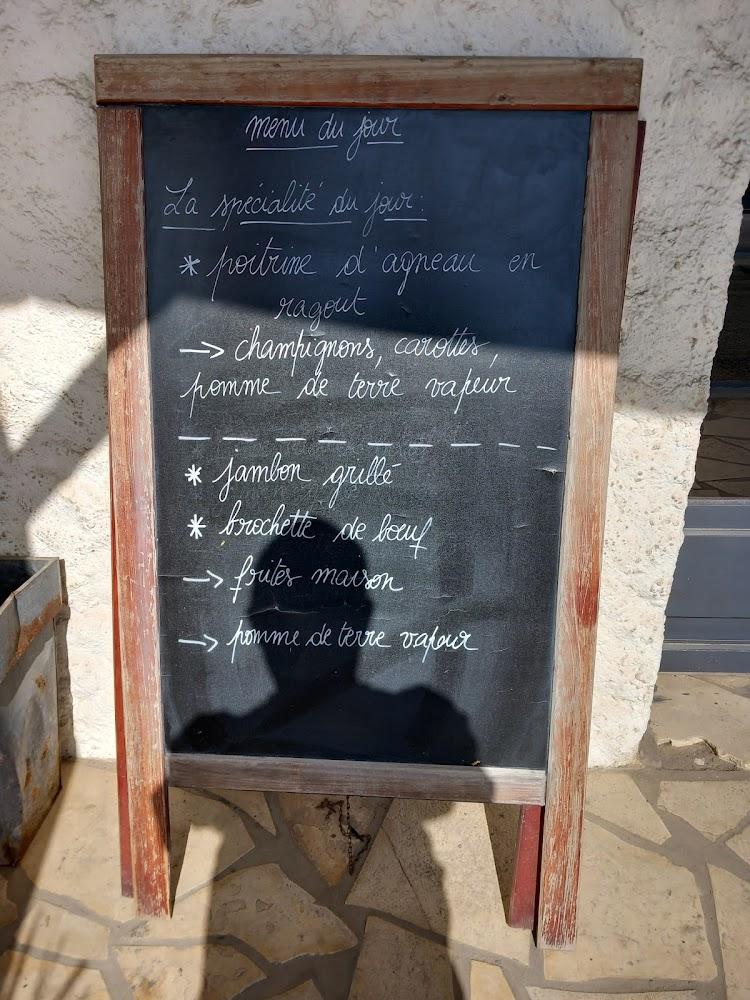 menu du jour
La spécialité du jour:
* poitrine d'agneau en
ragout
→ champignons, carottes,
pomme de terre vapeur
* jambon grillé
* brochette de bœuf
→ frites maison
→ pomme de terre vapeur